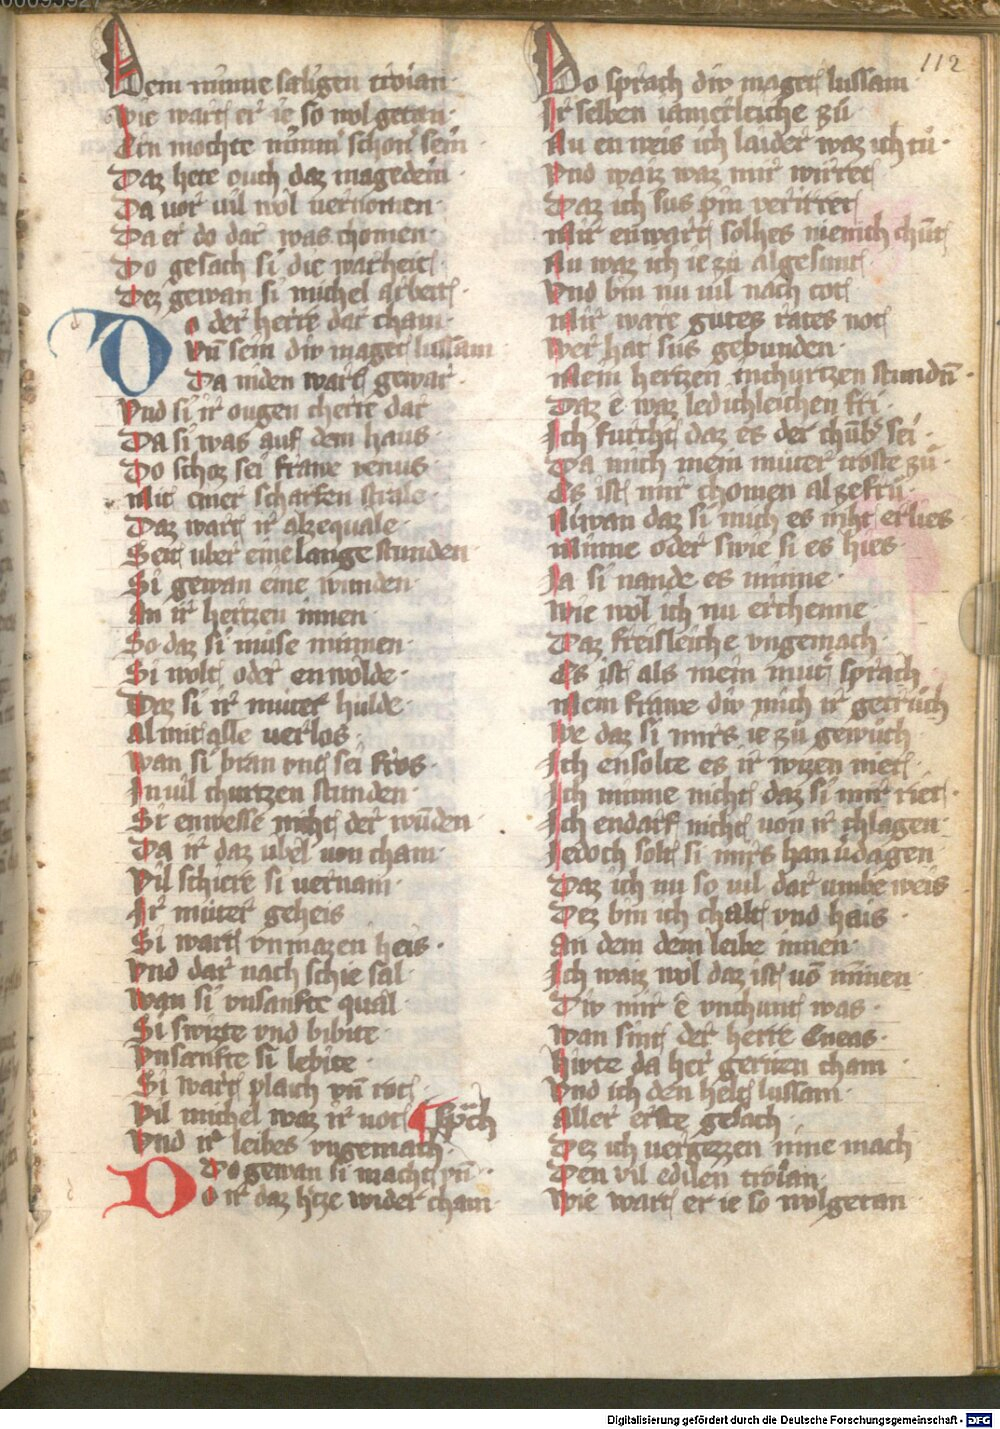 112
Dem minne saligen troian·
Wie wart er ie so wol getan·
Ern mochte nimm̄ schon̄ sein·
Daz hete ouch daz magedein·
Da uor uil wol uernomen·
Da er do dar was chomen·
Do gesach si die warheit·
Dez gewan si michel arbeit·
Do der herre dar cham·
Vn̄ sein div maget lussam
Da niden wart gewar·
Vnd si ir ougen cherte dar
Da si was auf dem haus·
Do schoz sei frawe venus·
Mit einer scharfen strale·
Daz wart ir alzequale·
Seit uber eine lange stunden·
Si gewan eine wunden·
An ir hertzen innen·
So daz si muse minnen·
Si wolt oder enwolde·
Daz si ir muter hulde·
Al mit alle uerlos·
Wan si bran vnt sei fros·
In uil churtzen stunden·
Si enweste nicht der wūden·
Da ir daz ubel uon cham·
Vil schiere si uernam·
Ir muter geheis
Si wart vnmazen heis·
Vnd dar nach schie sal·
Wan si vnsanfte qual·
Si switzte vnd bibite·
Vnsanfte si lebite·
Si wart plaich vn̄ rot·
Vil michel waz ir not· sprach
Vnd ir leibes vngemach·
Do gewan si macht vn̄
Do ir daz hitze wider cham·
Do sprach div maget lussam
Ir selben iamerleiche zu
Nu en weis ich laider waz ich tu·
Vnd waiz waz mir wirret
Daz ich sus pin verirret
Mir enwart solhes nie nich chunt
Nu waz ich ie zu al gesunt
Vnd bin nu uil nach tot
Mir ware gutes rates not
Wer hat sus gepunden·
Mein hertzen in churtzen stundn̄·
Daz e waz ledichleichen fri·
Ich furcht daz es der chūb̄ sei·
Da mich mein muter troste zu·
Es ist mir chomen al ze fru·
Niwan daz si mich es niht erlies
Minne oder swie si es hies·
Ja si nande es minne·
Wie wol ich nu erchenne·
Daz freisleiche vngemach·
Es ist als mein mut̄ sprach
Mein frawe div mich ir getruch
We daz si mirs ie zu gewuch
Ich ensolte es ir wizen niet
Ich minne nicht daz si mir riet·
Ich endarf nicht uon ir chlagen·
Jedoch solt si mirs han vdagen·
Daz ich nu so uil dar umbe weis
Dez bin ich chalt vnd hais·
An dem dem leibe innen·
Ich waiz wol daz ist uō minen·
Div mir e vnchunt was·
Wan sint der herre Eneas·
Hivte da her geriten cham
Vnd ich den helt lussam·
Aller erste gesach
Dez ich uergezzen nine mach
Den vil edilen troian·
Wie wart er ie so wolgetan
Digitalisierung gefördert durch die Deutsche Forschungsgemeinschaft - DFG